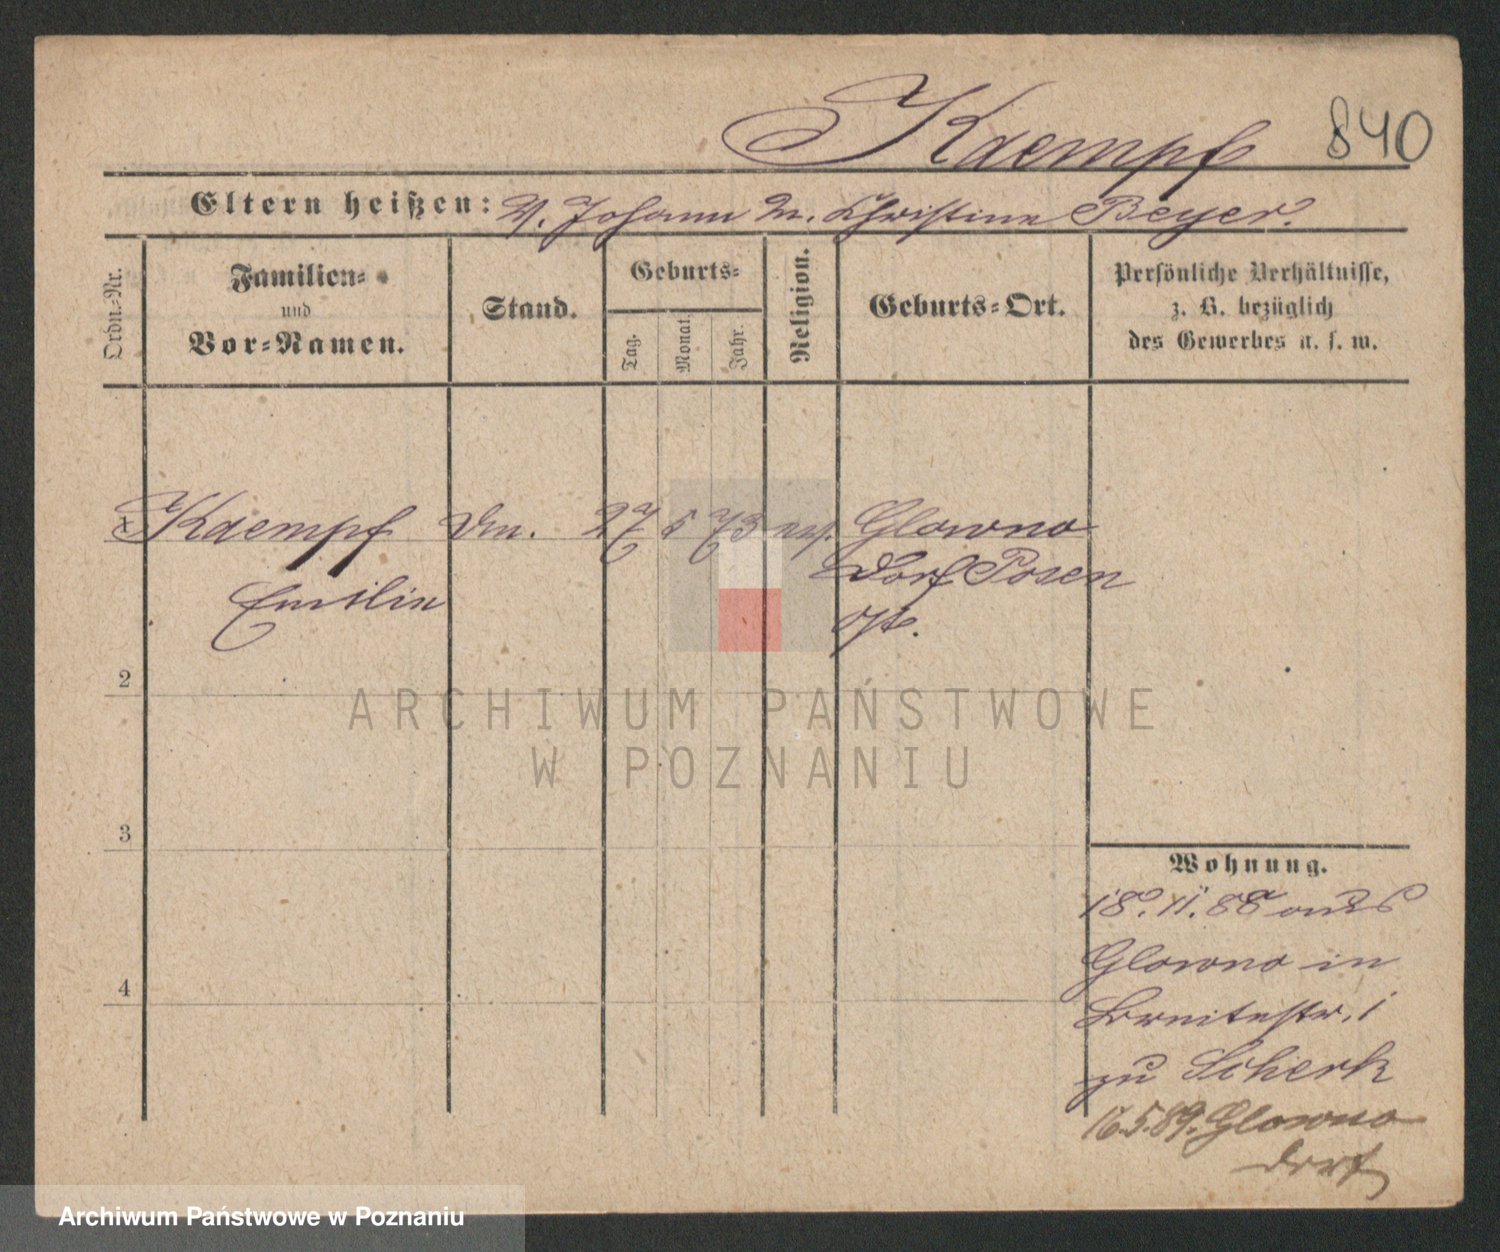 Kaempf 840
Eltern heißen: V. Johann M. Christine Beyer.
Ordn.-Nr.
Familien-
und
Vor-Namen.
Stand.
Geburts-
Tag.
Monat.
Jahr.
Religion.
Geburts-Ort.
Persönliche Verhältnisse,
z. B. bezüglich
des Gewerbes u. s. w.
1 Kaempf 27 5 73 Glowno
Dorf Posen
Emilie
2
3
4
Wohnung.
18. 11. 88 aus
Glowno in
1
zu Scherk
16.5.89. Glowno
Dorf
ARCHIWUM PAŃSTWOWE
W POZNANIU
Archiwum Państwowe w Poznaniu